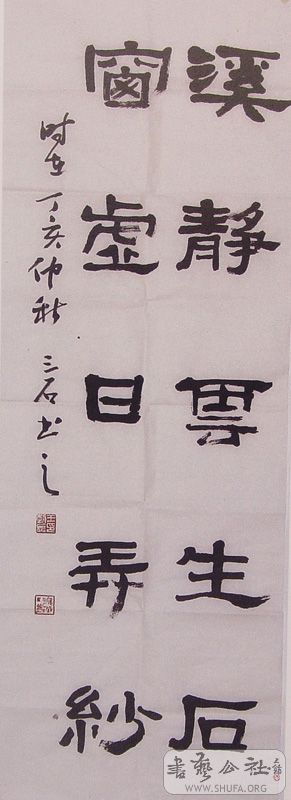 溪靜雲生石
窗虛日弄紗
时在丁亥仲秋 三石书之
書藝公社
WWW.SHUFA.ORG